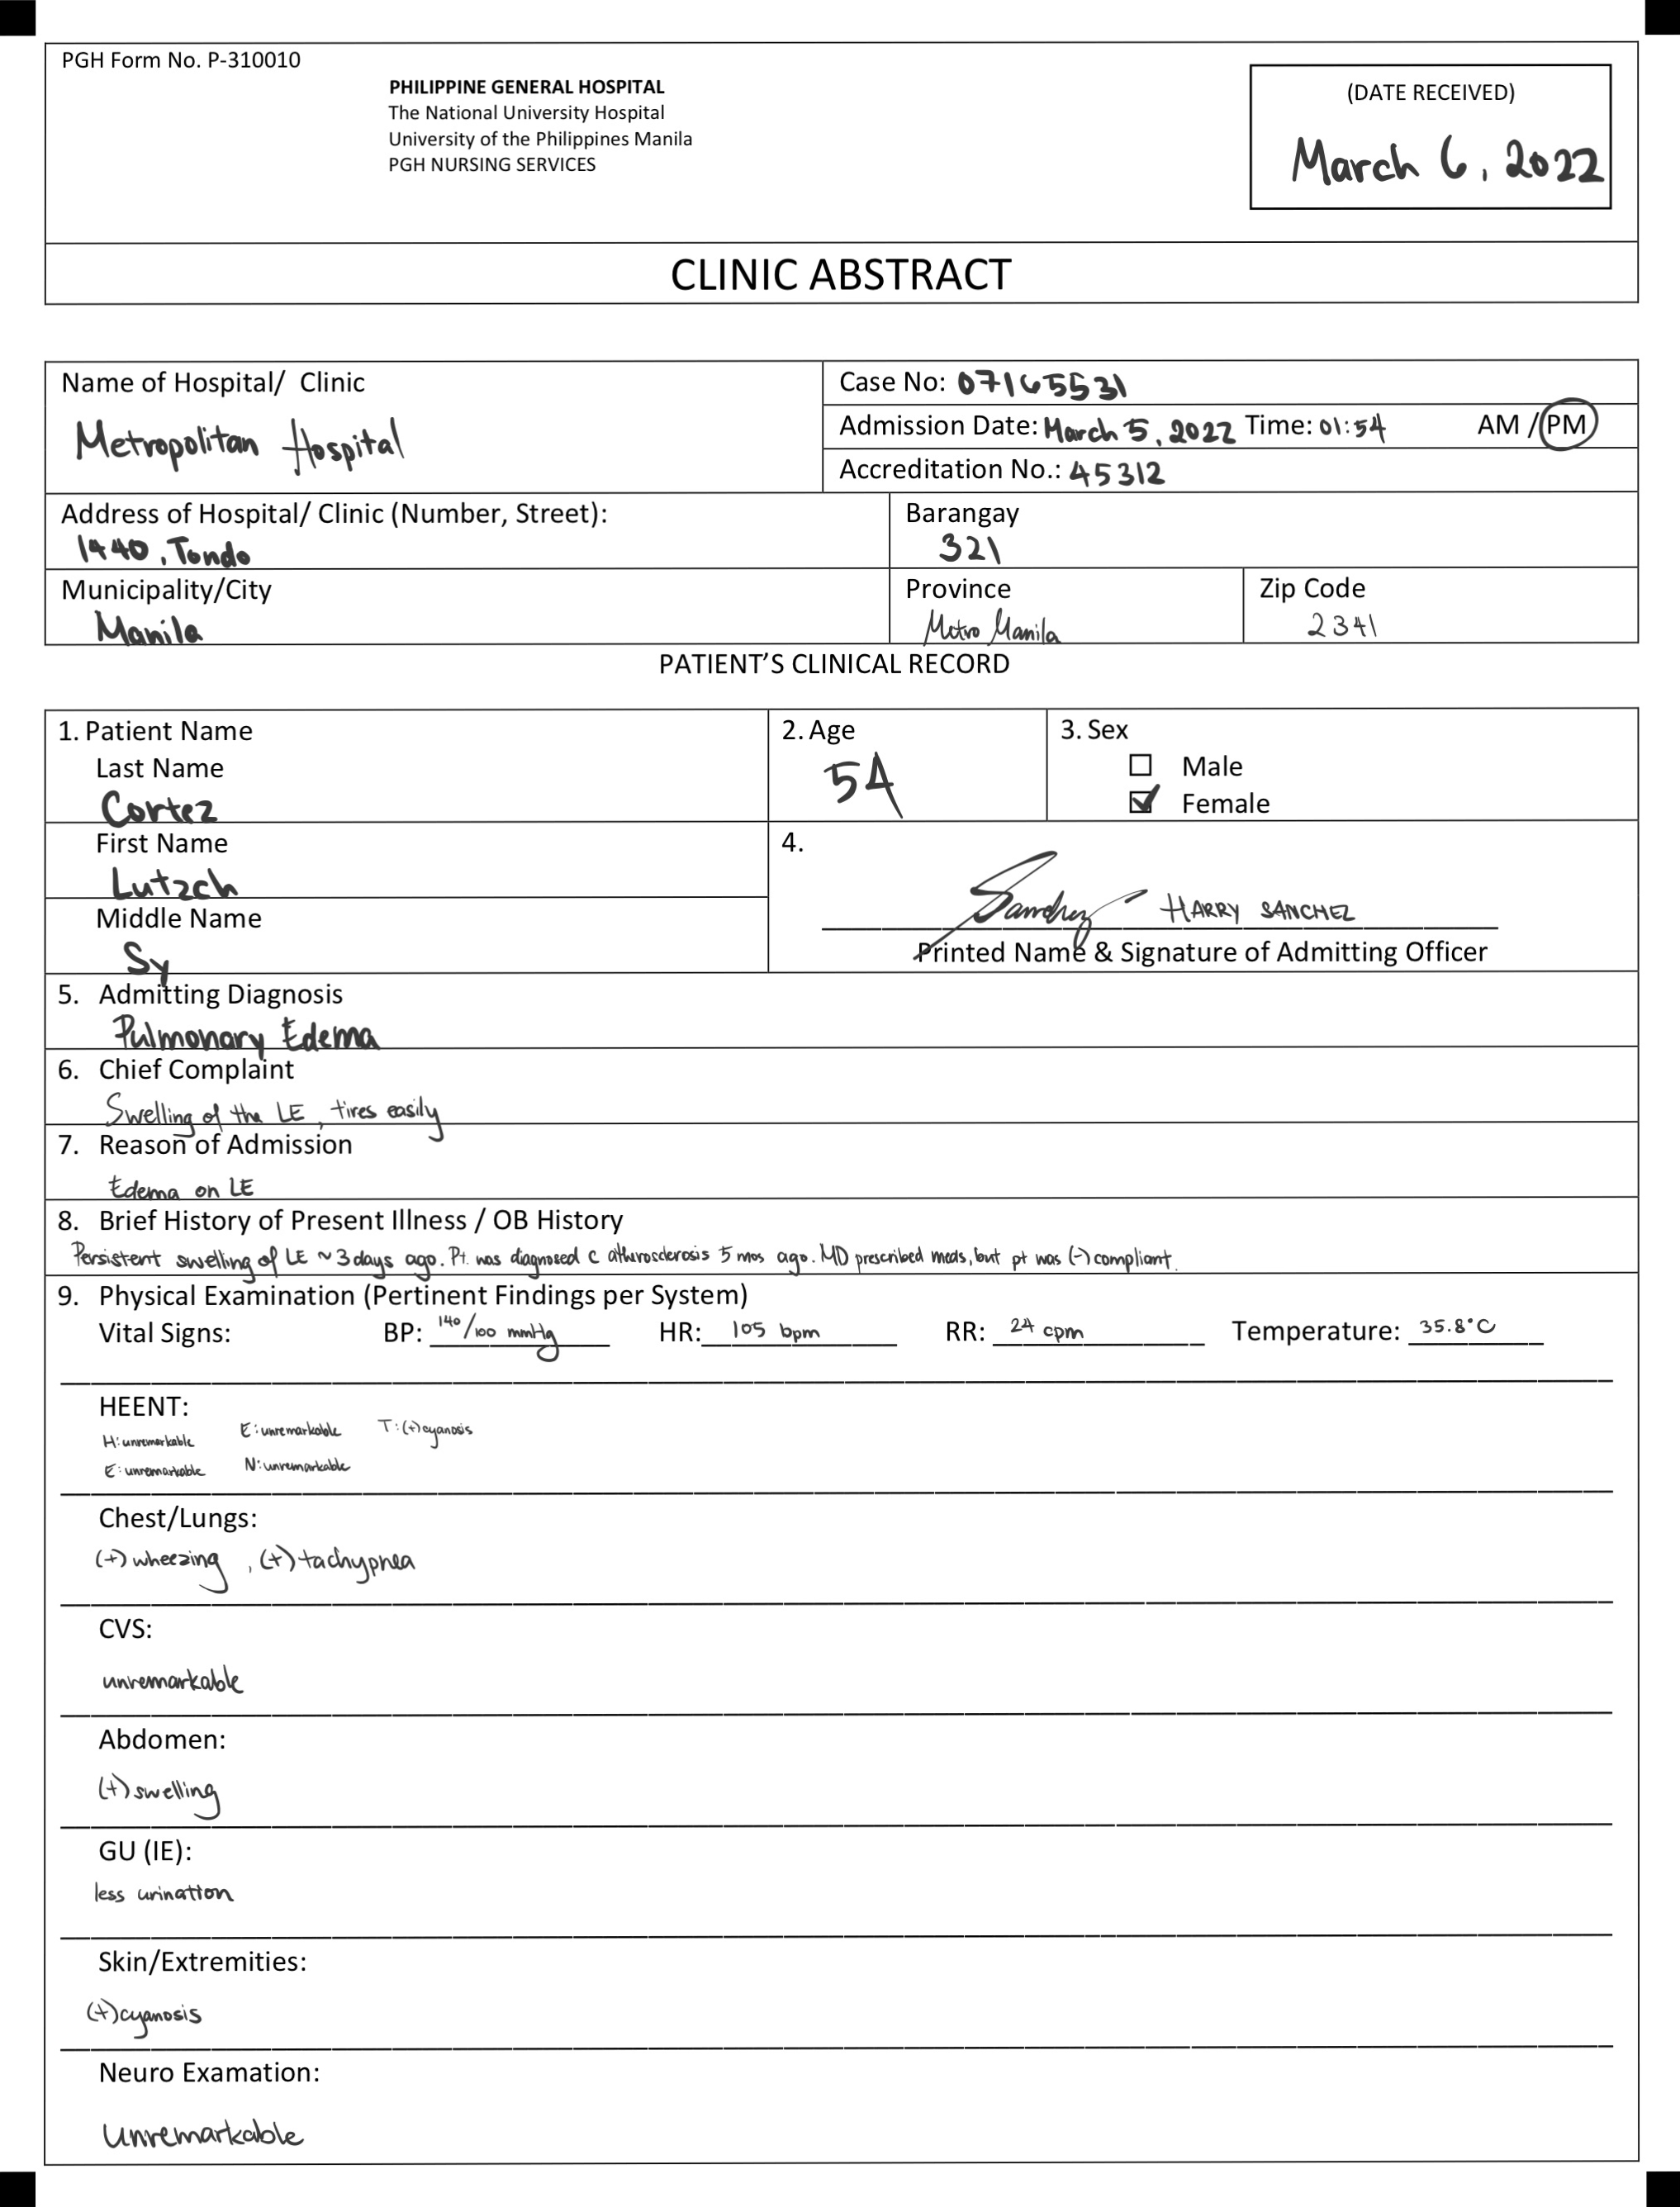 PGH Form No. P-310010
PHILIPPINE GENERAL HOSPITAL
The National University Hospital
University of the Philippines Manila
PGH NURSING SERVICES
(DATE RECEIVED)
March 6, 2022
CLINIC ABSTRACT
Name of Hospital/ Clinic
Metropolitan Hospital
Case No: 07165531
Admission Date: March 5, 2022 Time: 01:54 AM / PM
Accreditation No.: 45312
Address of Hospital/ Clinic (Number, Street):
1440, Tondo
Barangay
321
Municipality/City
Manila
Province
Metro Manila
Zip Code
2341
PATIENT’S CLINICAL RECORD
1. Patient Name
Last Name
Cortez
2. Age
54
3. Sex
Male
Female
First Name
Lutzch
Middle Name
Sy
4.
Sanchez HARRY SANCHEZ
Printed Name & Signature of Admitting Officer
5. Admitting Diagnosis
Pulmonary Edema
6. Chief Complaint
Swelling of the LE, tires easily
7. Reason of Admission
Edema on LE
8. Brief History of Present Illness / OB History
Persistent swelling of LE ~ 3 days ago. Pt. was diagnosed c atherosclerosis 5 mos ago. MD prescribed meds, but pt was (-) compliant.
9. Physical Examination (Pertinent Findings per System)
Vital Signs: BP: 140/100 mmHg HR: 105 bpm RR: 24 cpm Temperature: 35.8°C
HEENT:
H: unremarkable E: unremarkable T: (+) cyanosis
E: unremarkable N: unremarkable
Chest/Lungs:
(+) wheezing, (+) tachypnea
CVS:
unremarkable
Abdomen:
(+) swelling
GU (IE):
less urination
Skin/Extremities:
(+) cyanosis
Neuro Examation:
Unremarkable